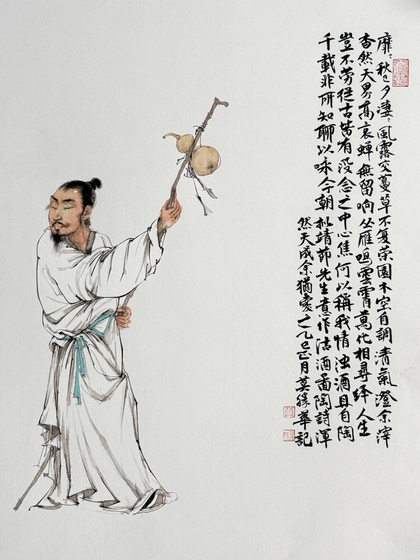 靡々秋已夕淒々風露交蔓草不复榮園木空自調清氣澄余滓
杳然天界高哀蟬無留响丛雁鳴雲霄萬化相尋绎人生
豈不勞從古皆有没念之中心焦何以稱我情濁酒且自陶
千載非所知聊以咏今朝拟靖節先生意作沽酒圖陶詩渾
然天成余猶愛之乙巳正月莫緣華記